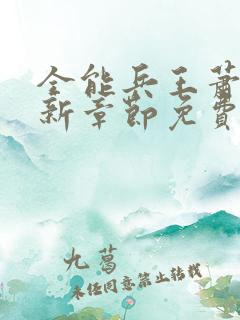 全能兵王萧
新章節免費
九葛
未经同意禁止转载